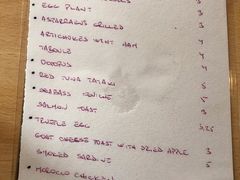 EGG PLANT 3
ASPARRAGUS GRILLED 4
ARTICHOKES WITH HAM 4
TABOULE 4
OCTOPUS
RED TUNA TATAKI 6
SEABASS 5
SALMON TOAST 3
TRUFFLE EGG 3,25
GOAT CHEESE TOAST WITH DRIED APPLE 3
SMOKED SARDINE 5
MOROCCO CHICKEN